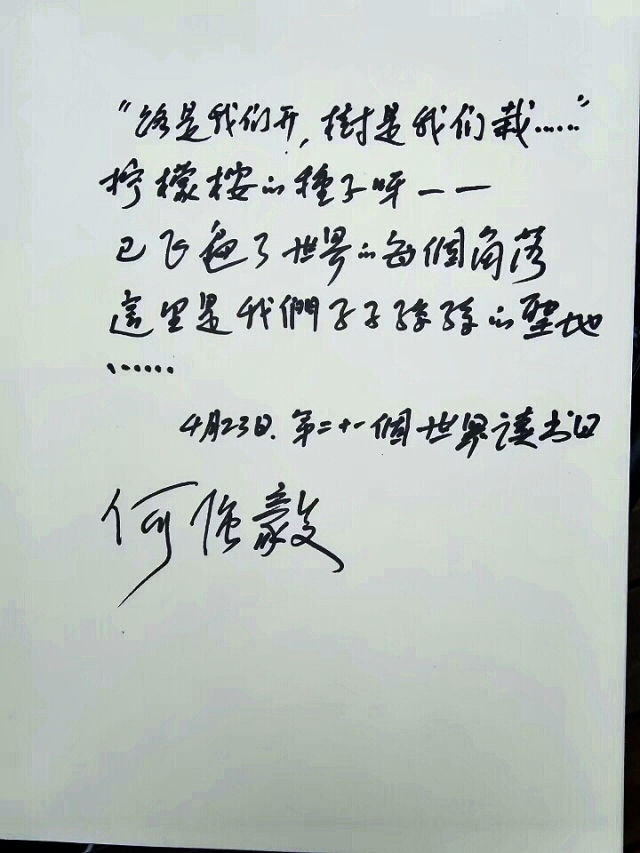 “路是我们开，樹是我们栽……”
柠檬桉的種子呀——
已飞遍了世界的每個角落
這里是我們子子孫孫的聖地
……
4月23日.第二十一個世界读书日
何強毅